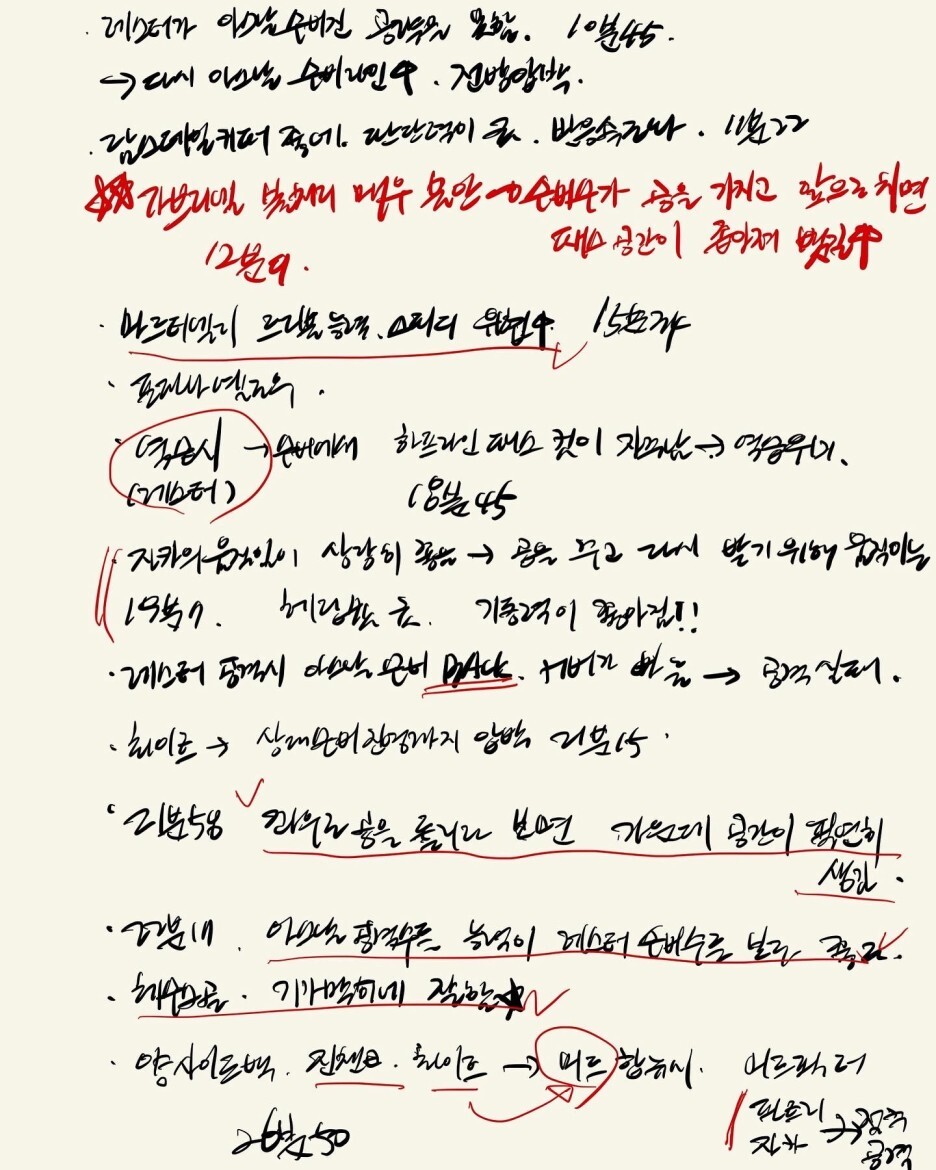 · 레스터가 아스날 수비진 공략을 못함. 10분45.
→ 다시 아스날 수비라인↑. 전방압박.
· 람스데일 키퍼 판단력이 굿. 반응속도나. 11분22
가브리엘 볼처리 매우 불안 → 수비수가 공을 가지고 앞으로 치면
패스 공간이 좁아져 뺏김↑
12분9.
· 마르티넬리 드리블 능력. 스피디 위협↑ 15분24
·
· 역습시 → 수비에서 하프라인 패스 컷이 자주남 → 역습위기.
(레스터) 18분45
자카의 움직임이 상당히 좋음 → 공을 주고 다시 받기 위해 움직이는
19분7. 헤딩 굿. 기동력이 좋아짐!!
· 레스터 공격시 아스날 수비 BACK. → 공격실패.
· 화이트 → 상대수비진영까지 압박 21분15.
· 21분58 좌우로 공을 돌리다 보면 가운데 공간이 필연히
생김.
· 22분 아스날 공격수들 능력이 레스터 수비수들 보다 좋다.
· 제수스골. 기가막히네 잘함↑
· 양사이드백. 진첸코. 화이트 → 미드 합류시. 미드필더
26분50
자카 → 공격